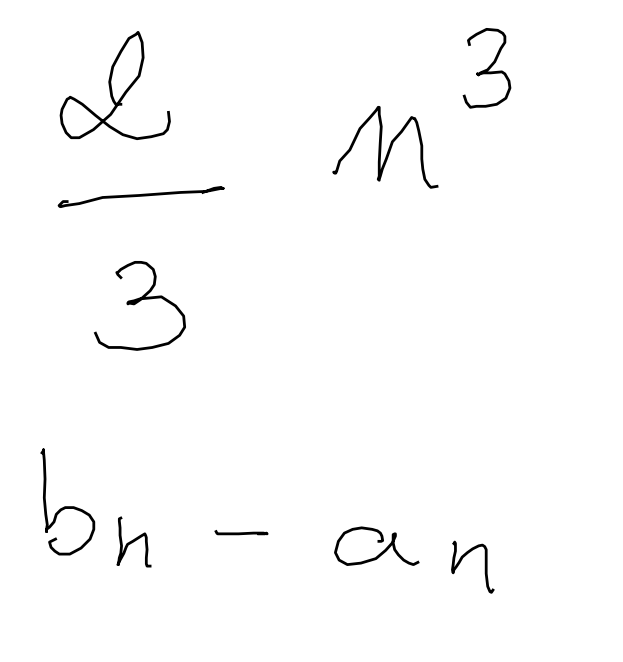 2/3 n³
bₙ - aₙ